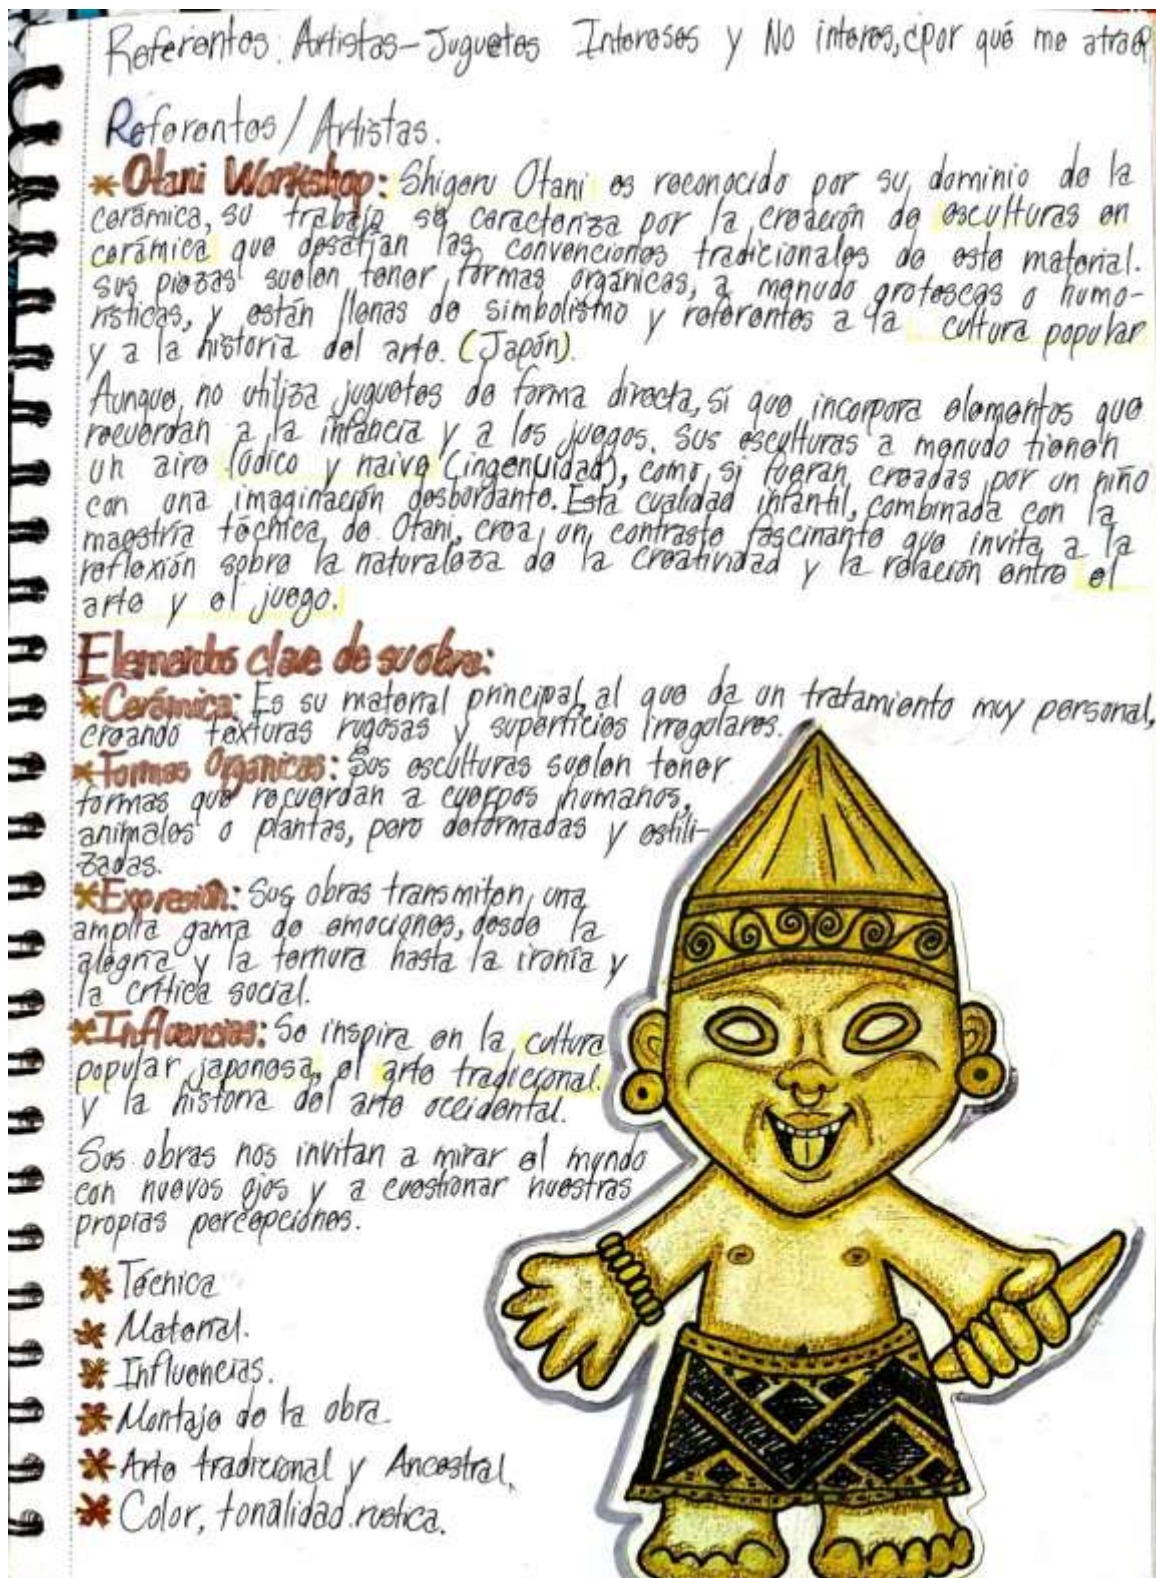 Referentes: Artistas-Juguetes Intereses y No interes, ¿Por qué me atrae?
Referentes/Artistas.
*Otani Workshop: Shigeru Otani es reconocido por su dominio de la
cerámica, su trabajo se caracteriza por la creación de esculturas en
cerámica que desafían las convenciones tradicionales de este material.
sus piezas suelen tener formas orgánicas, a menudo grotescas o humo-
rísticas, y están llenas de simbolismo y referentes a la cultura popular
y a la historia del arte. (Japón).
Aunque no utiliza juguetes de forma directa, sí que incorpora elementos que
recuerdan a la infancia y a los juegos. Sus esculturas a menudo tienen
un aire lúdico y naive (ingenuidad), como si fueran creadas por un niño
con una imaginación desbordante. Esta cualidad infantil, combinada con la
maestría técnica de Otani, crea un contraste fascinante que invita a la
reflexión sobre la naturaleza de la creatividad y la relación entre el
arte y el juego.
Elementos clave de su obra:
*Cerámica: Es su material principal, al que da un tratamiento muy personal,
creando texturas rugosas y superficies irregulares.
*Formas Orgánicas: Sus esculturas suelen tener
formas que recuerdan a cuerpos humanos,
animales o plantas, pero deformadas y estili-
zadas.
*Expresión: Sus obras transmiten una
amplia gama de emociones, desde la
alegría y la ternura hasta la ironía y
la crítica social.
*Influencias: Se inspira en la cultura
popular japonesa, el arte tradicional.
y la historia del arte occidental.
Sus obras nos invitan a mirar el mundo
con nuevos ojos y a cuestionar nuestras
propias percepciones.
* Técnica
* Material.
* Influencias.
* Montaje de la obra.
* Arte tradicional y Ancestral.
* Color, tonalidad rustica.